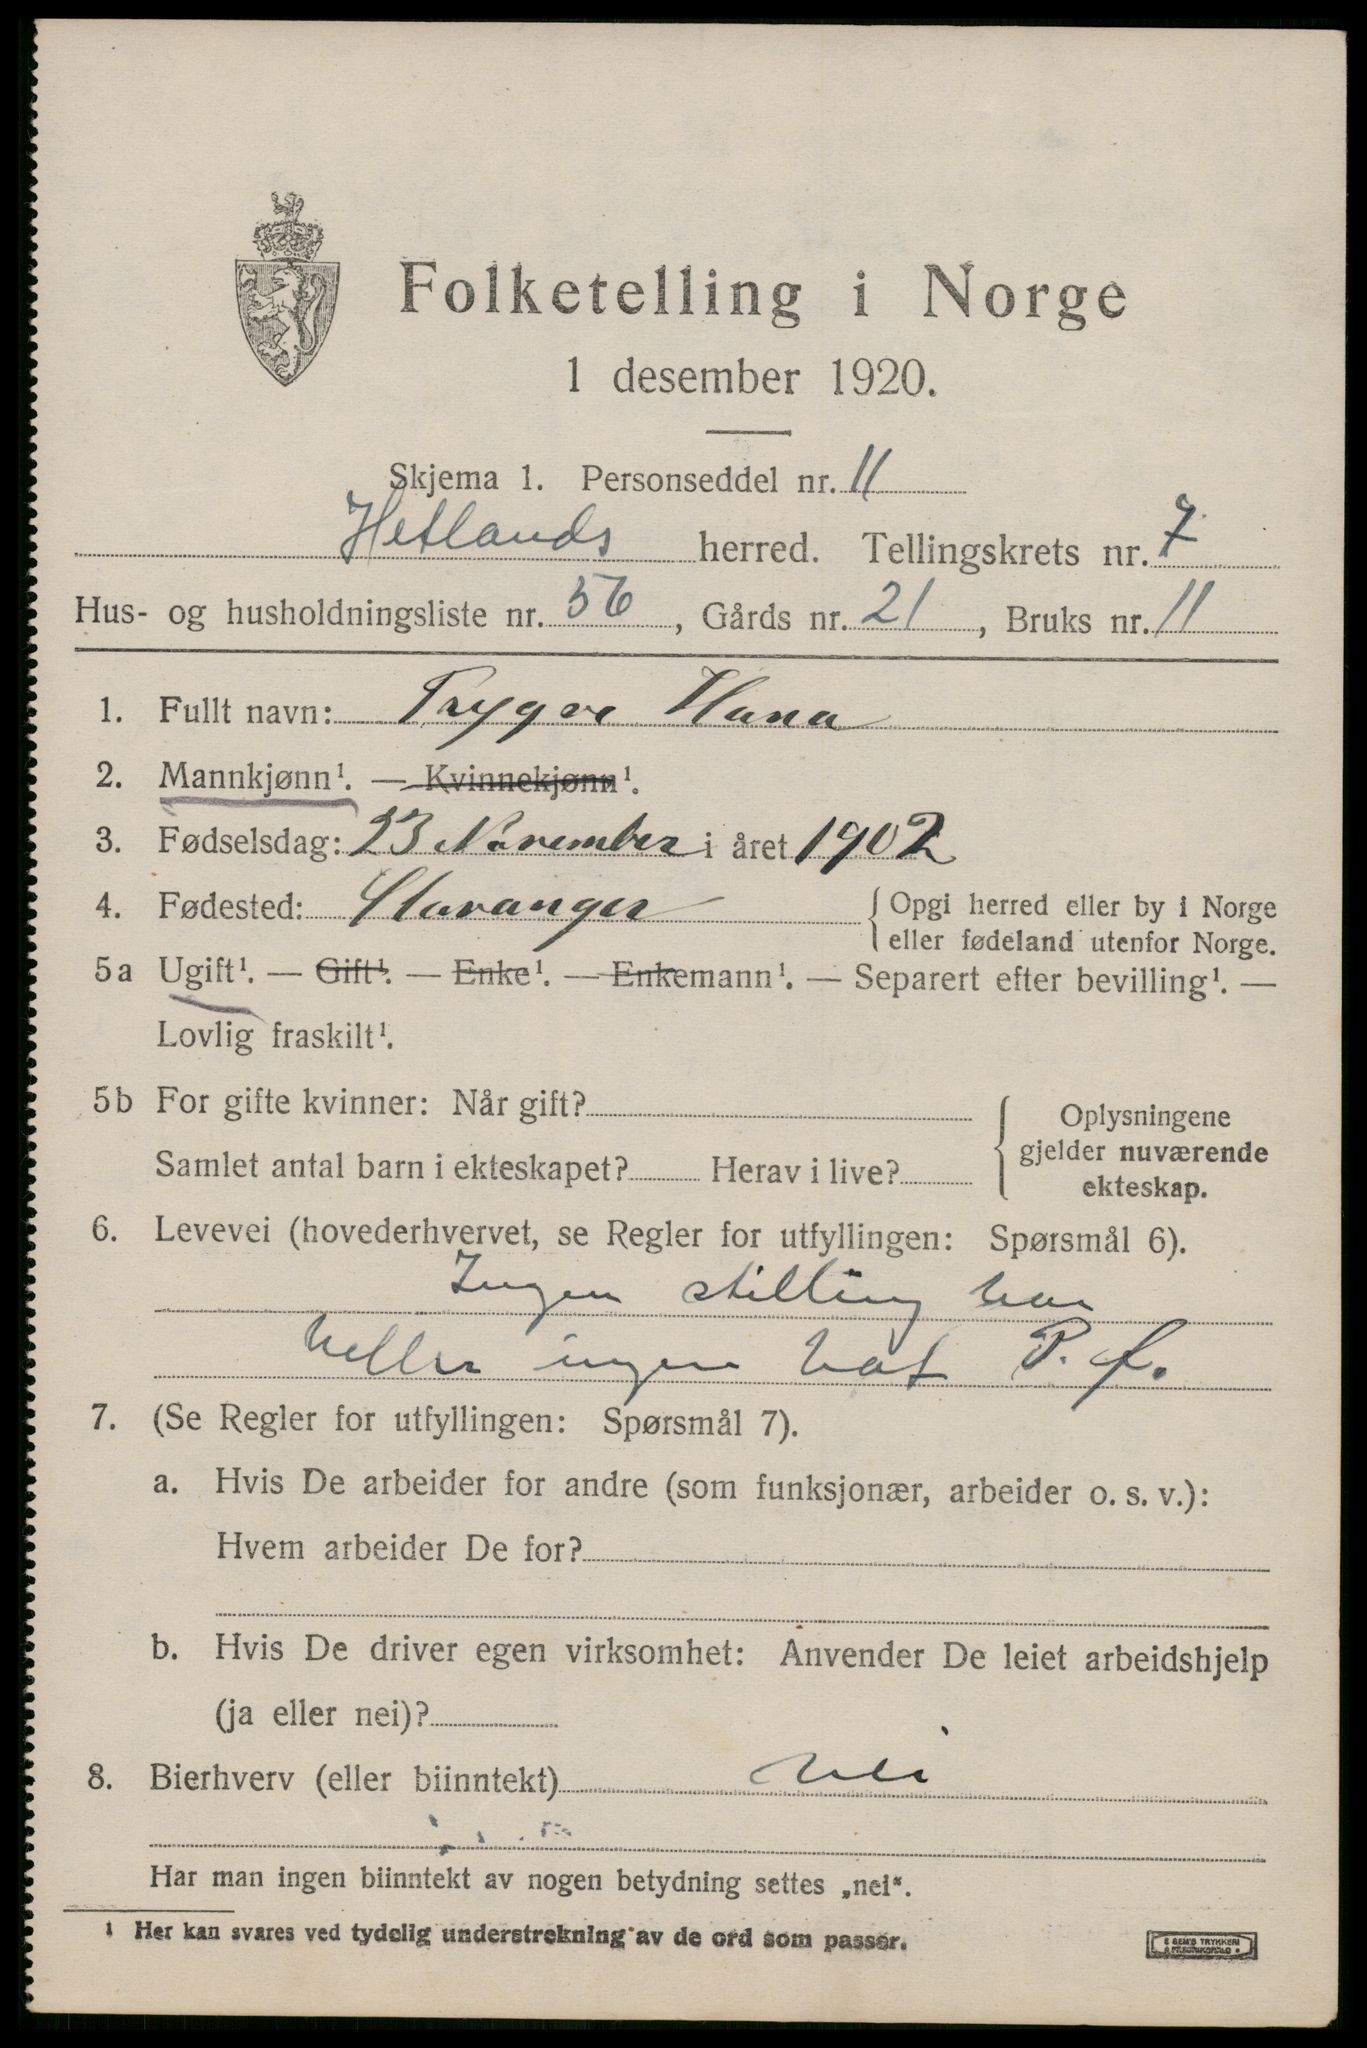 Folketelling i Norge
1 desember 1920.
Skjema 1. Personseddel nr. 11
Hetlands herred. Tellingskrets nr. 7
Hus- og husholdningsliste nr. 56, Gårds nr. 21, Bruks nr. 11
1. Fullt navn: Trygve Hana
2. Mannkjønn¹. — Kvinnekjønn¹.
3. Fødselsdag: 23 November i året 1902
4. Fødested: Stavanger { Opgi herred eller by i Norge
eller fødeland utenfor Norge.
5a Ugift¹. — Gift¹. — Enke¹. — Enkemann¹. — Separert efter bevilling¹. —
Lovlig fraskilt¹.
5b For gifte kvinner: Når gift?
Samlet antal barn i ekteskapet? Herav i live?
Oplysningene
gjelder nuværende
ekteskap.
6. Levevei (hovederhvervet, se Regler for utfyllingen: Spørsmål 6).
Ingen stilling har
heller ingen hat P. f.
7. (Se Regler for utfyllingen: Spørsmål 7).
a. Hvis De arbeider for andre (som funksjonær, arbeider o. s. v.):
Hvem arbeider De for?
b. Hvis De driver egen virksomhet: Anvender De leiet arbeidshjelp
(ja eller nei)?
8. Bierhverv (eller biinntekt) Nei
Har man ingen biinntekt av nogen betydning settes „nei“.
¹ Her kan svares ved tydelig understrekning av de ord som passer.